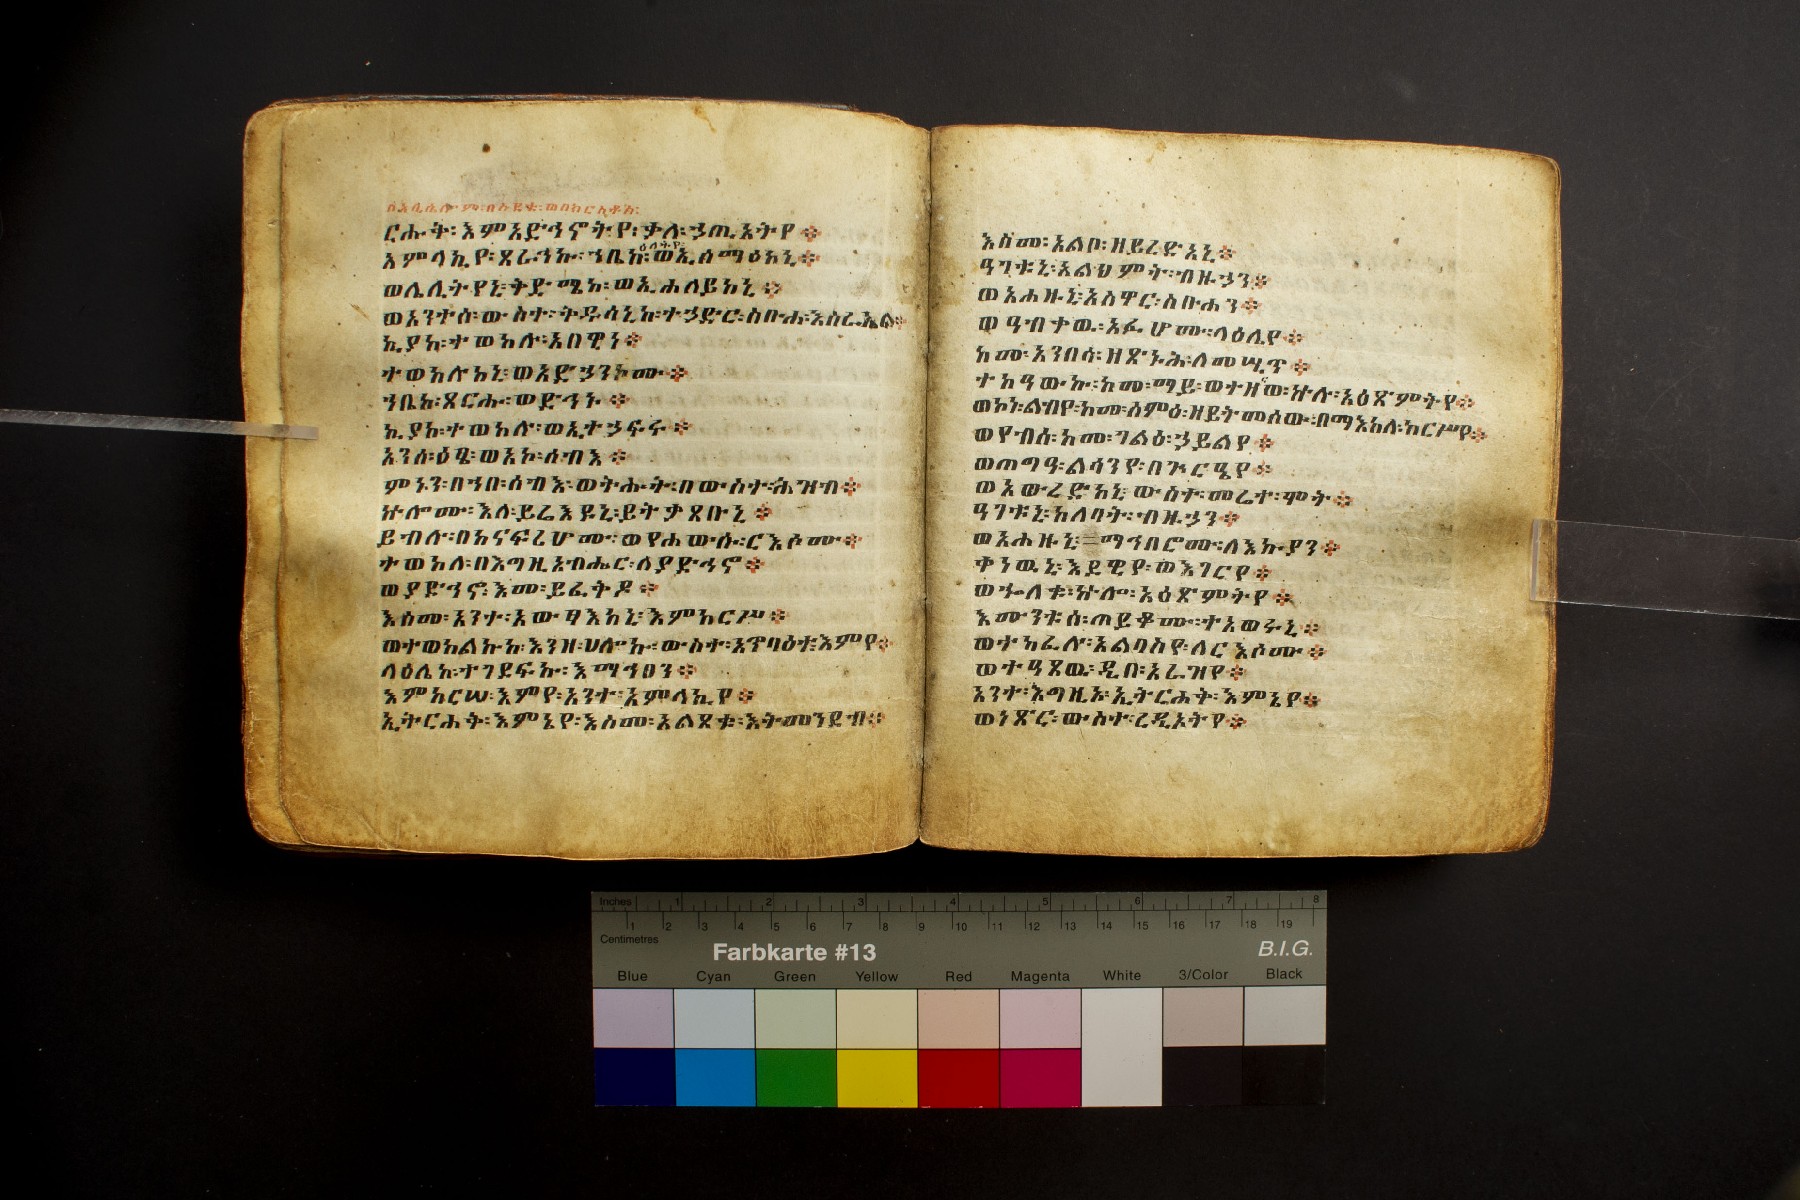 ርሑቅ፡እምአድኅኖትየ፡ቃለ፡ኃጢአትየ፨
ዕለትየ፡
አምላኪየ፡ጸራኅኩ፡ኀቤከ፡ወኢሰማዕከኒ፨
ወሌሊትየኒ፡ትድሜከ፡ወኢሐለይከኒ፨
ወአንተሰ፡ውስተ፡ቅዱሳኒከ፡ተኃድር፡ስቡሐ፡እስራኤል፨
ኪያከ፡ተወከሉ፡አበዊነ፨
ተወከሉከኒ፡ወአድኃንኮሙ፨
ኀቤከ፡ጸርሑ፡ወድኅኑ፨
ኪያከ፡ተወከሉ፡ወኢተኃፍሩ፨
አንሰ፡ዕፄ፡ወአኮ፡ሰብእ፨
ምኑን፡በኀበ፡ሰብእ፡ወትሑት፡በውስተ፡ሕዝብ፨
ኵሎሙ፡እለ፡ይሬእዩኒ፡ይትቃጸቡኒ፨
ይብሉ፡በከናፍሪሆሙ፡ወየሐውሱ፡ርእሶሙ፨
ተወከለ፡በእግዚአብሔር፡ለያድኅኖ፨
ወያድኅኖ፡እመ፡ይፈትዶ፨
እስመ፡አንተ፡አውፃእከኒ፡እምከርሥ፨
ወተወከልኩከ፡እንዘ፡ሀሎኩ፡ውስተ፡አጥባዕተ፡እምየ፨
ላዕሌከ፡ተገደፍኩ፡እማኅፀን፨
እምከርሠ፡እምየ፡አንተ፡አምላኪየ፨
ኢትርሐቅ፡እምኔየ፡እስመ፡አልጸቁ፡እትመንደብ፨
እስመ፡አልቦ፡ዘይረድአኒ፨
ዓገቱኒ፡አልህምት፡ብዙኃን፨
ወአሐዙኒ፡አስዋር፡ስቡሐን፨
ወዓብቀዉ፡አፉሆሙ፡ላዕሌየ፨
ከሙ፡አንበሳ፡ዘጽኑሕ፡ለመሢጥ፨
ተከዓውኩ፡ከመ፡ማይ፡ወተዘርወ፡ኵሉ፡አዕጽምትየ፨
ወኮነ፡ልብየ፡ከመ፡ሰምዕ፡ዘይትመሰው፡በማእከለ፡ከርሥየ፨
ወየብሰ፡ከመ፡ገልዕ፡ኃይልየ፨
ወጠግዓ፡ልሳንየ፡በጕርዔየ፨
ወአውረድከኒ፡ውስተ፡መሬተ፡ሞት፨
ዓገቱኒ፡ከለባት፡ብዙኃን፨
ወአሐዙኒ፡ማኅበሮሙ፡ለእኩያን፨
ቀነዉኒ፡እደዊየ፡ወእገርየ፨
ወኈለቁ፡ኵሎ፡አዕጽምትየ፨
እሙንቱሰ፡ጠይቆሙ፡ተአወሩኒ፨
ወተከፈሉ፡አልባስየ፡ለርእሶሙ፨
ወተዓጸዉ፡ዲበ፡አራዝየ፨
አንተ፡እግዚኦ፡ኢትርሐቅ፡እምኔየ፨
ወነጽር፡ውስተ፡ረዲኦትየ፨
Inches 1 2 3 4 5 6 7 8
1 2 3 4 5 6 7 8 9 10 11 12 13 14 15 16 17 18 19
Centimetres
Farbkarte #13
B.I.G.
Blue Cyan Green Yellow Red Magenta White 3/Color Black